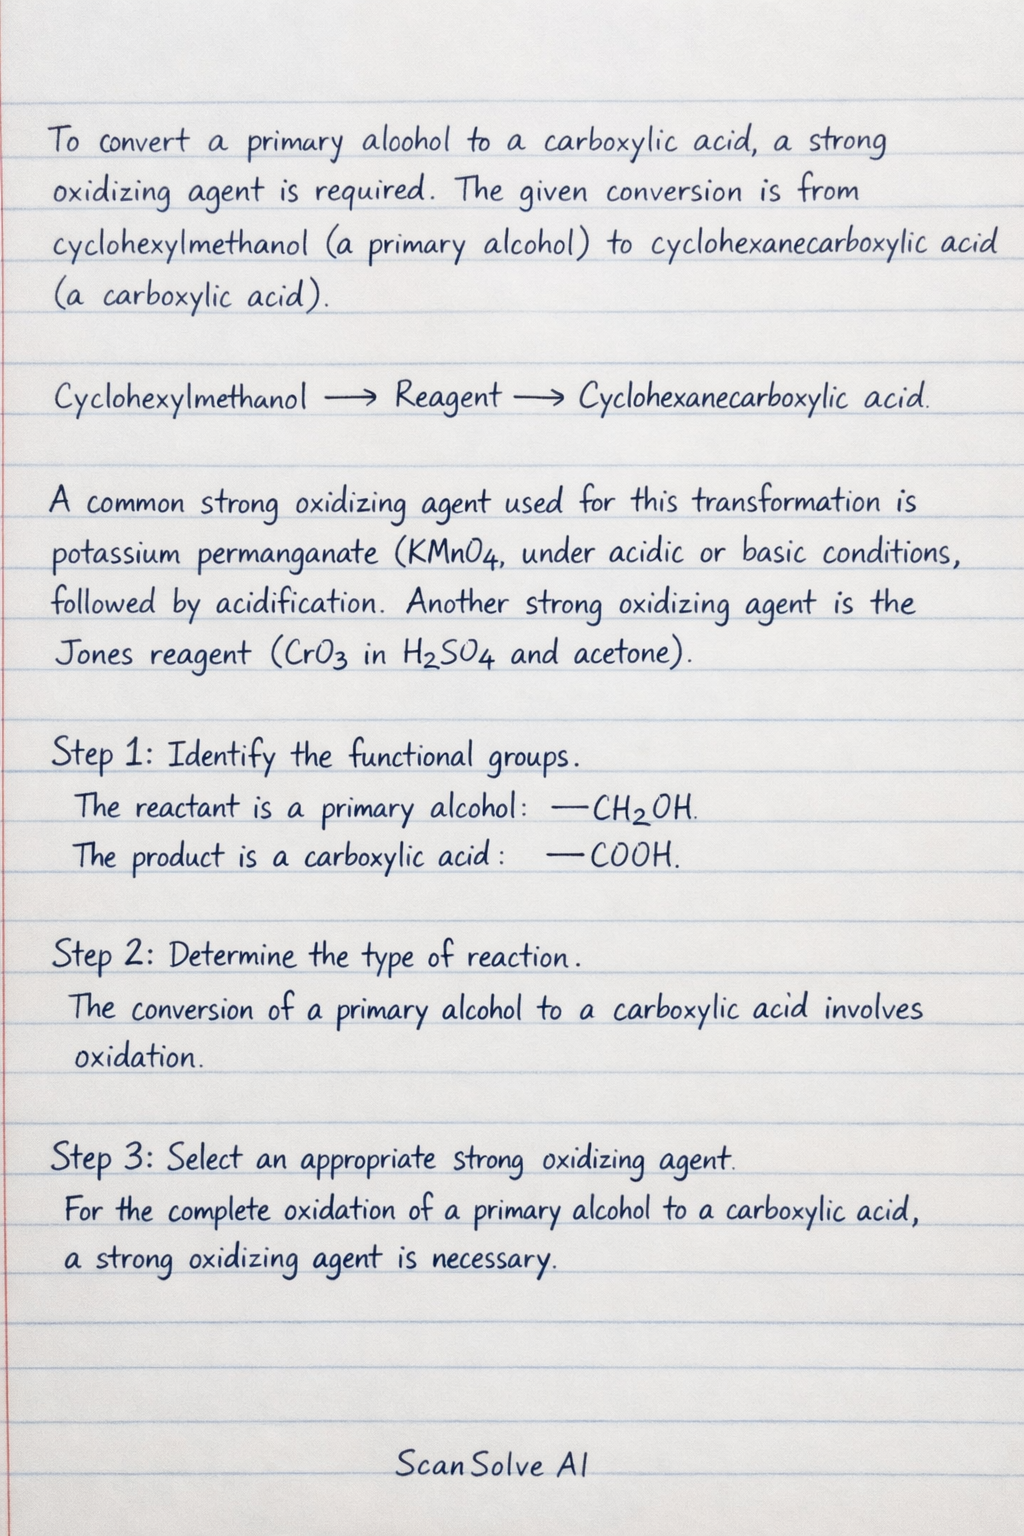 To convert a primary aloohol to a carboxylic acid, a strong
oxidizing agent is required. The given conversion is from
cyclohexylmethanol (a primary alcohol) to cyclohexanecarboxylic acid
(a carboxylic acid).
Cyclohexylmethanol ⟶ Reagent ⟶ Cyclohexanecarboxylic acid.
A common strong oxidizing agent used for this transformation is
potassium permanganate (KMnO₄, under acidic or basic conditions,
followed by acidification. Another strong oxidizing agent is the
Jones reagent (CrO₃ in H₂SO₄ and acetone).
Step 1: Identify the functional groups.
The reactant is a primary alcohol: —CH₂OH.
The product is a carboxylic acid: —COOH.
Step 2: Determine the type of reaction.
The conversion of a primary alcohol to a carboxylic acid involves
oxidation.
Step 3: Select an appropriate strong oxidizing agent.
For the complete oxidation of a primary alcohol to a carboxylic acid,
a strong oxidizing agent is necessary.
ScanSolve AI